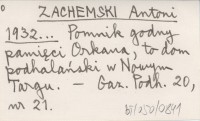 ZACHEMSKI Antoni
1932... Pomnik godny
pamięci Orkana, to dom
podhalański w Nowym
Targu. - Gaz. Podh. 20,
nr 21.